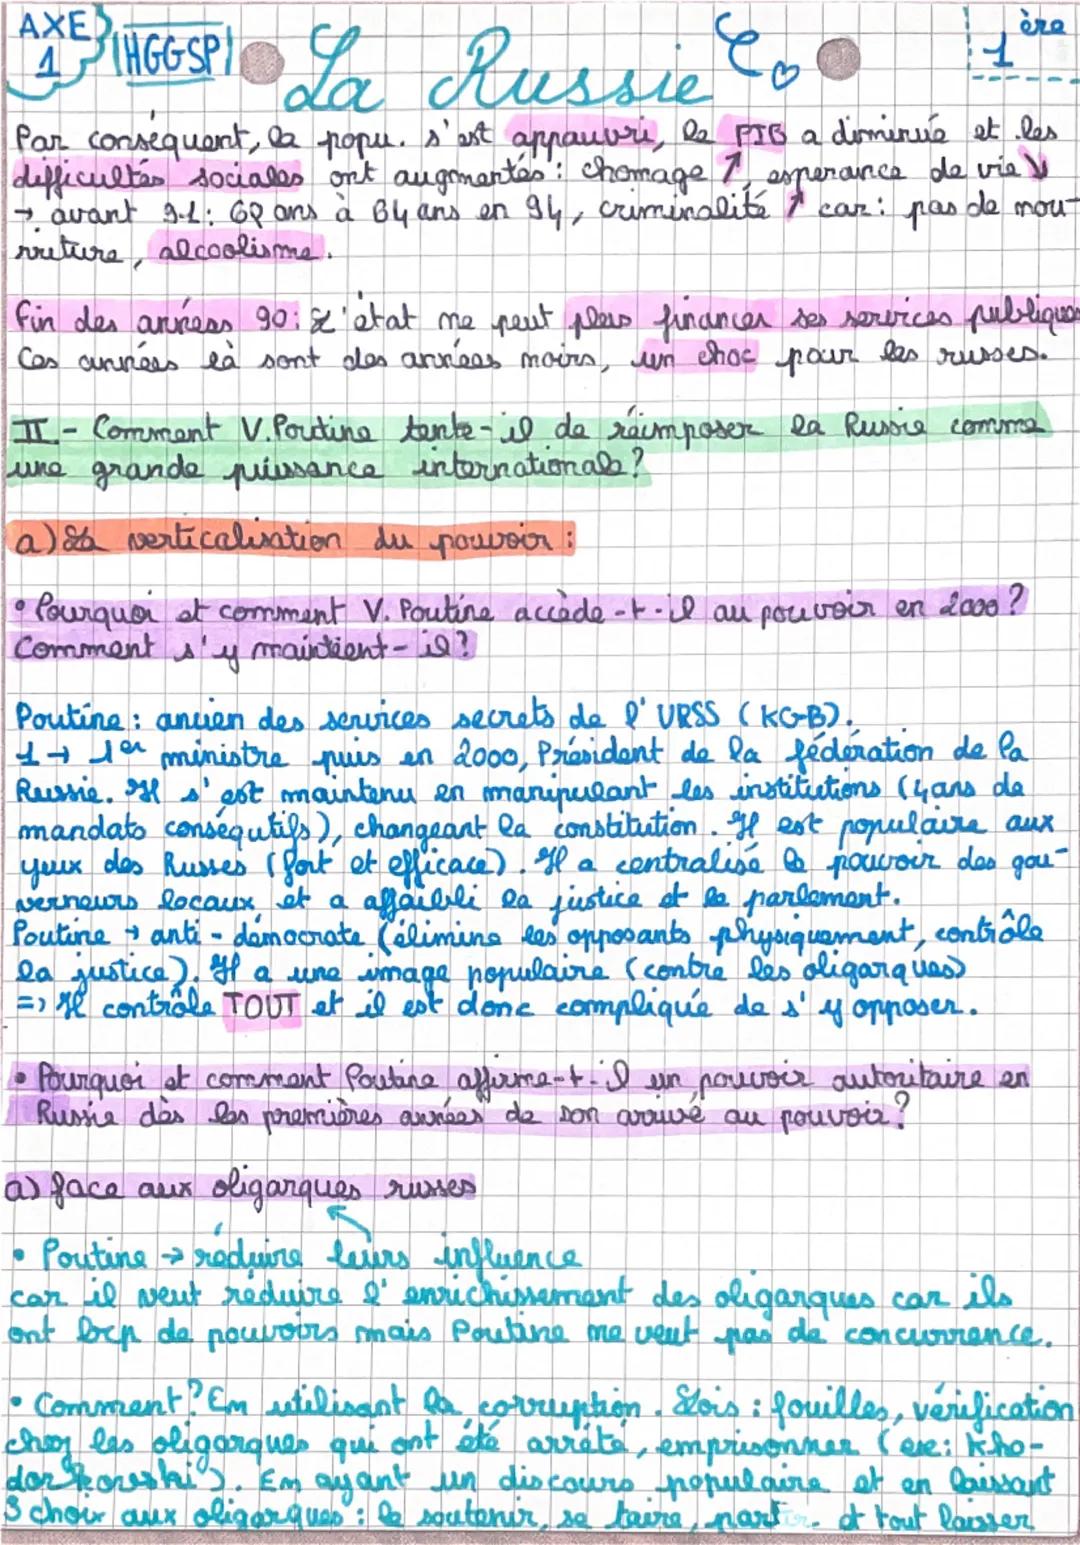 AXE 1 HGGSP La Russie 1ère
Par conséquent, la popu. s'est appauvri, le PIB a diminué et les
difficultés sociales ont augmentés : chomage ↗ esperance de vie ↘
→ avant 91: 69 ans à 64 ans en 94, criminalité ↗ car : pas de nou-
rriture, alcoolisme.
fin des années 90: L'état ne peut plus financer ses services publiques
Ces années là sont des années noirs, un choc pour les russes.
II - Comment V.Poutine tente-il de réimposer la Russie comme
une grande puissance internationale?
a) La verticalisation du pouvoir :
• Pourquoi et comment V. Poutine accède-t-il au pouvoir en 2000 ?
Comment s'y maintient-il?
Poutine : ancien des services secrets de l'URSS (KGB).
1 → 1er ministre puis en 2000, Président de la fédération de la
Russie. Il s'est maintenu en manipulant les institutions (4 ans de
mandats conséqutifs), changeant la constitution. Il est populaire aux
yeux des Russes (fort et efficace). Il a centralisé le pouvoir des gou-
verneurs locaux et a affaibli la justice et le parlement.
Poutine → anti-démocrate (élimine les opposants physiquement, contrôle
la justice). Il a une image populaire (contre les oligarques)
=> Il contrôle TOUT et il est donc compliqué de s'y opposer.
• Pourquoi et comment Poutine affirme-t-il un pouvoir autoritaire en
Russie dès les premières années de son arrivé au pouvoir?
a) face aux oligarques russes
• Poutine → réduire leurs influence
car il veut réduire l'enrichissement des oligarques car ils
ont bcp de pouvoirs mais Poutine ne veut pas de concurrence.
• Comment? En utilisant la corruption. Lois : fouilles, vérification
chez les oligarques qui ont été arrêté, emprisonner (ex: Kho-
dorkovski). En ayant un discours populaire et en laissant
3 choix aux oligarques : le soutenir, se taire, partir et tout laisser